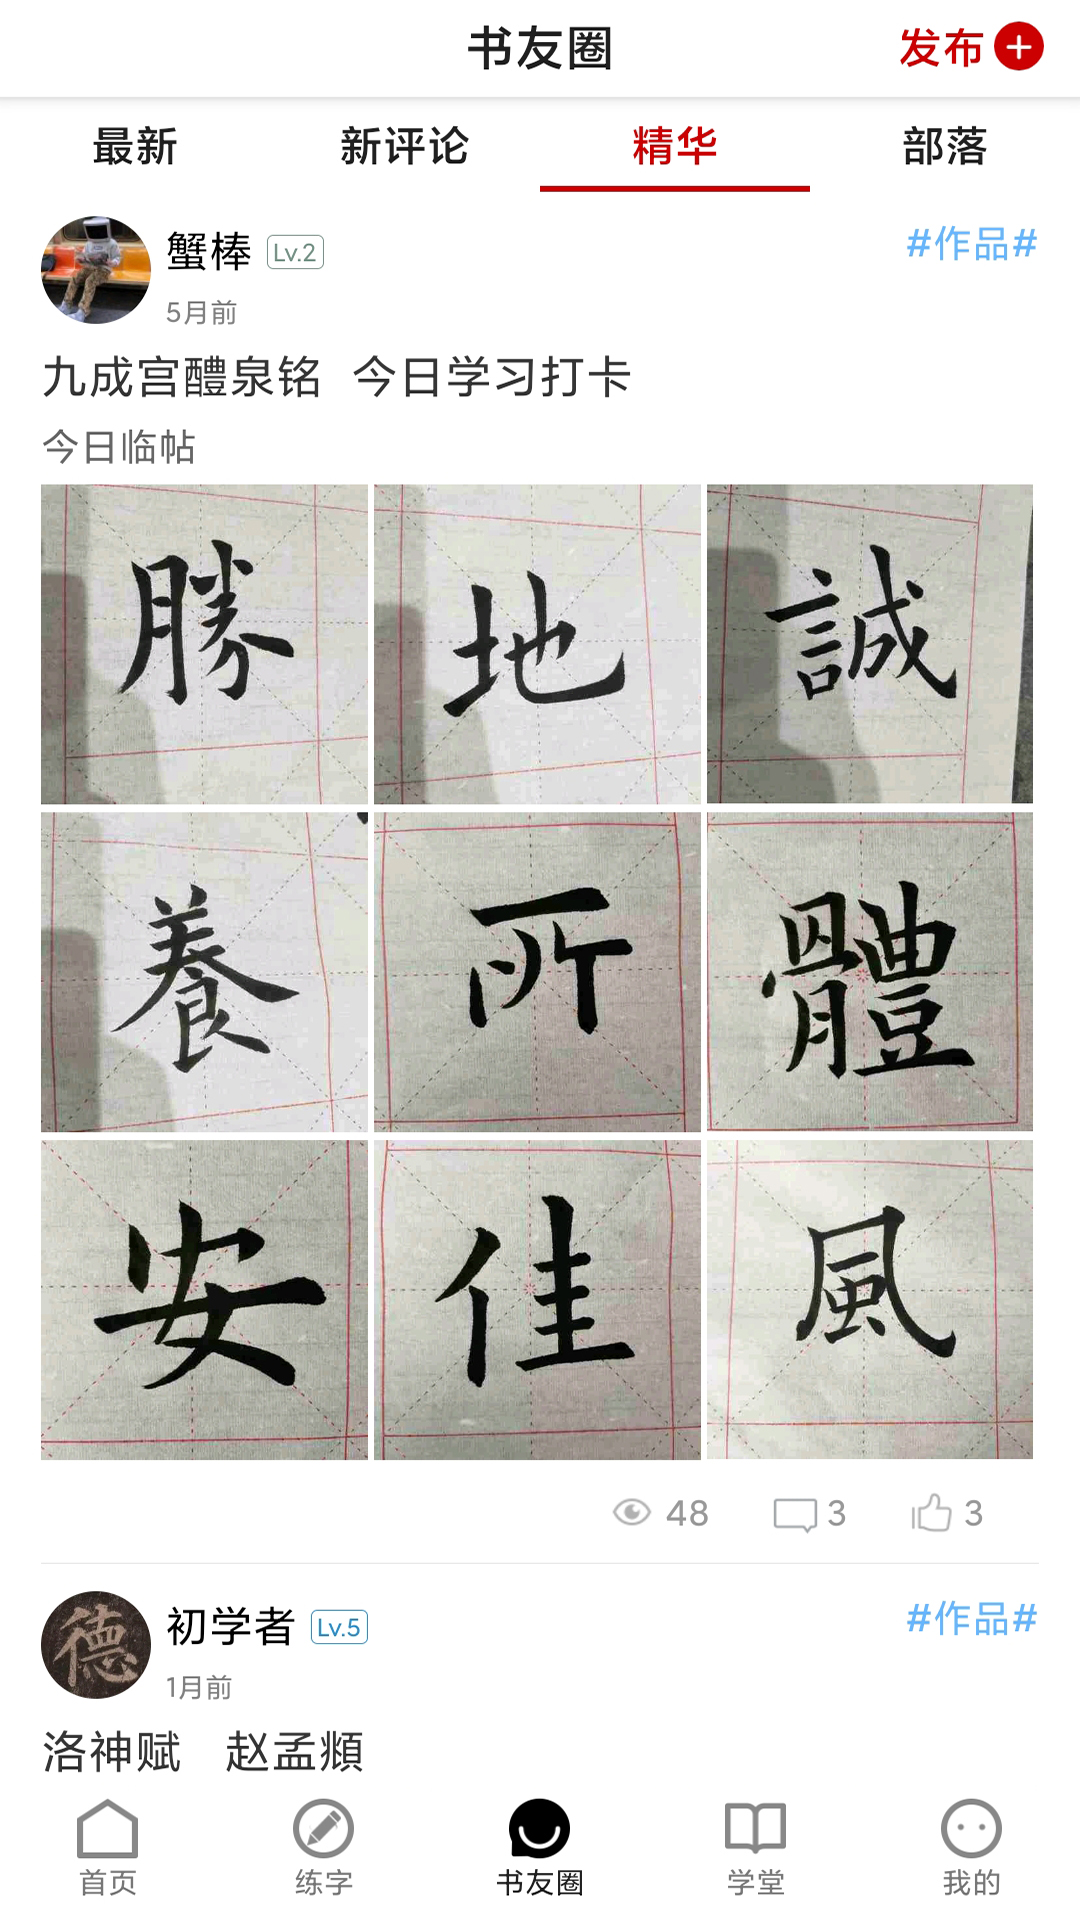 书友圈
发布
最新 新评论 精华 部落
蟹棒 Lv.2 #作品#
5月前
九成宫醴泉铭 今日学习打卡
今日临帖
勝 地 誠
養 所 體
安 佳 風
48 3 3
德
初学者 Lv.5 #作品#
1月前
洛神赋 赵孟頫
首页 练字 书友圈 学堂 我的